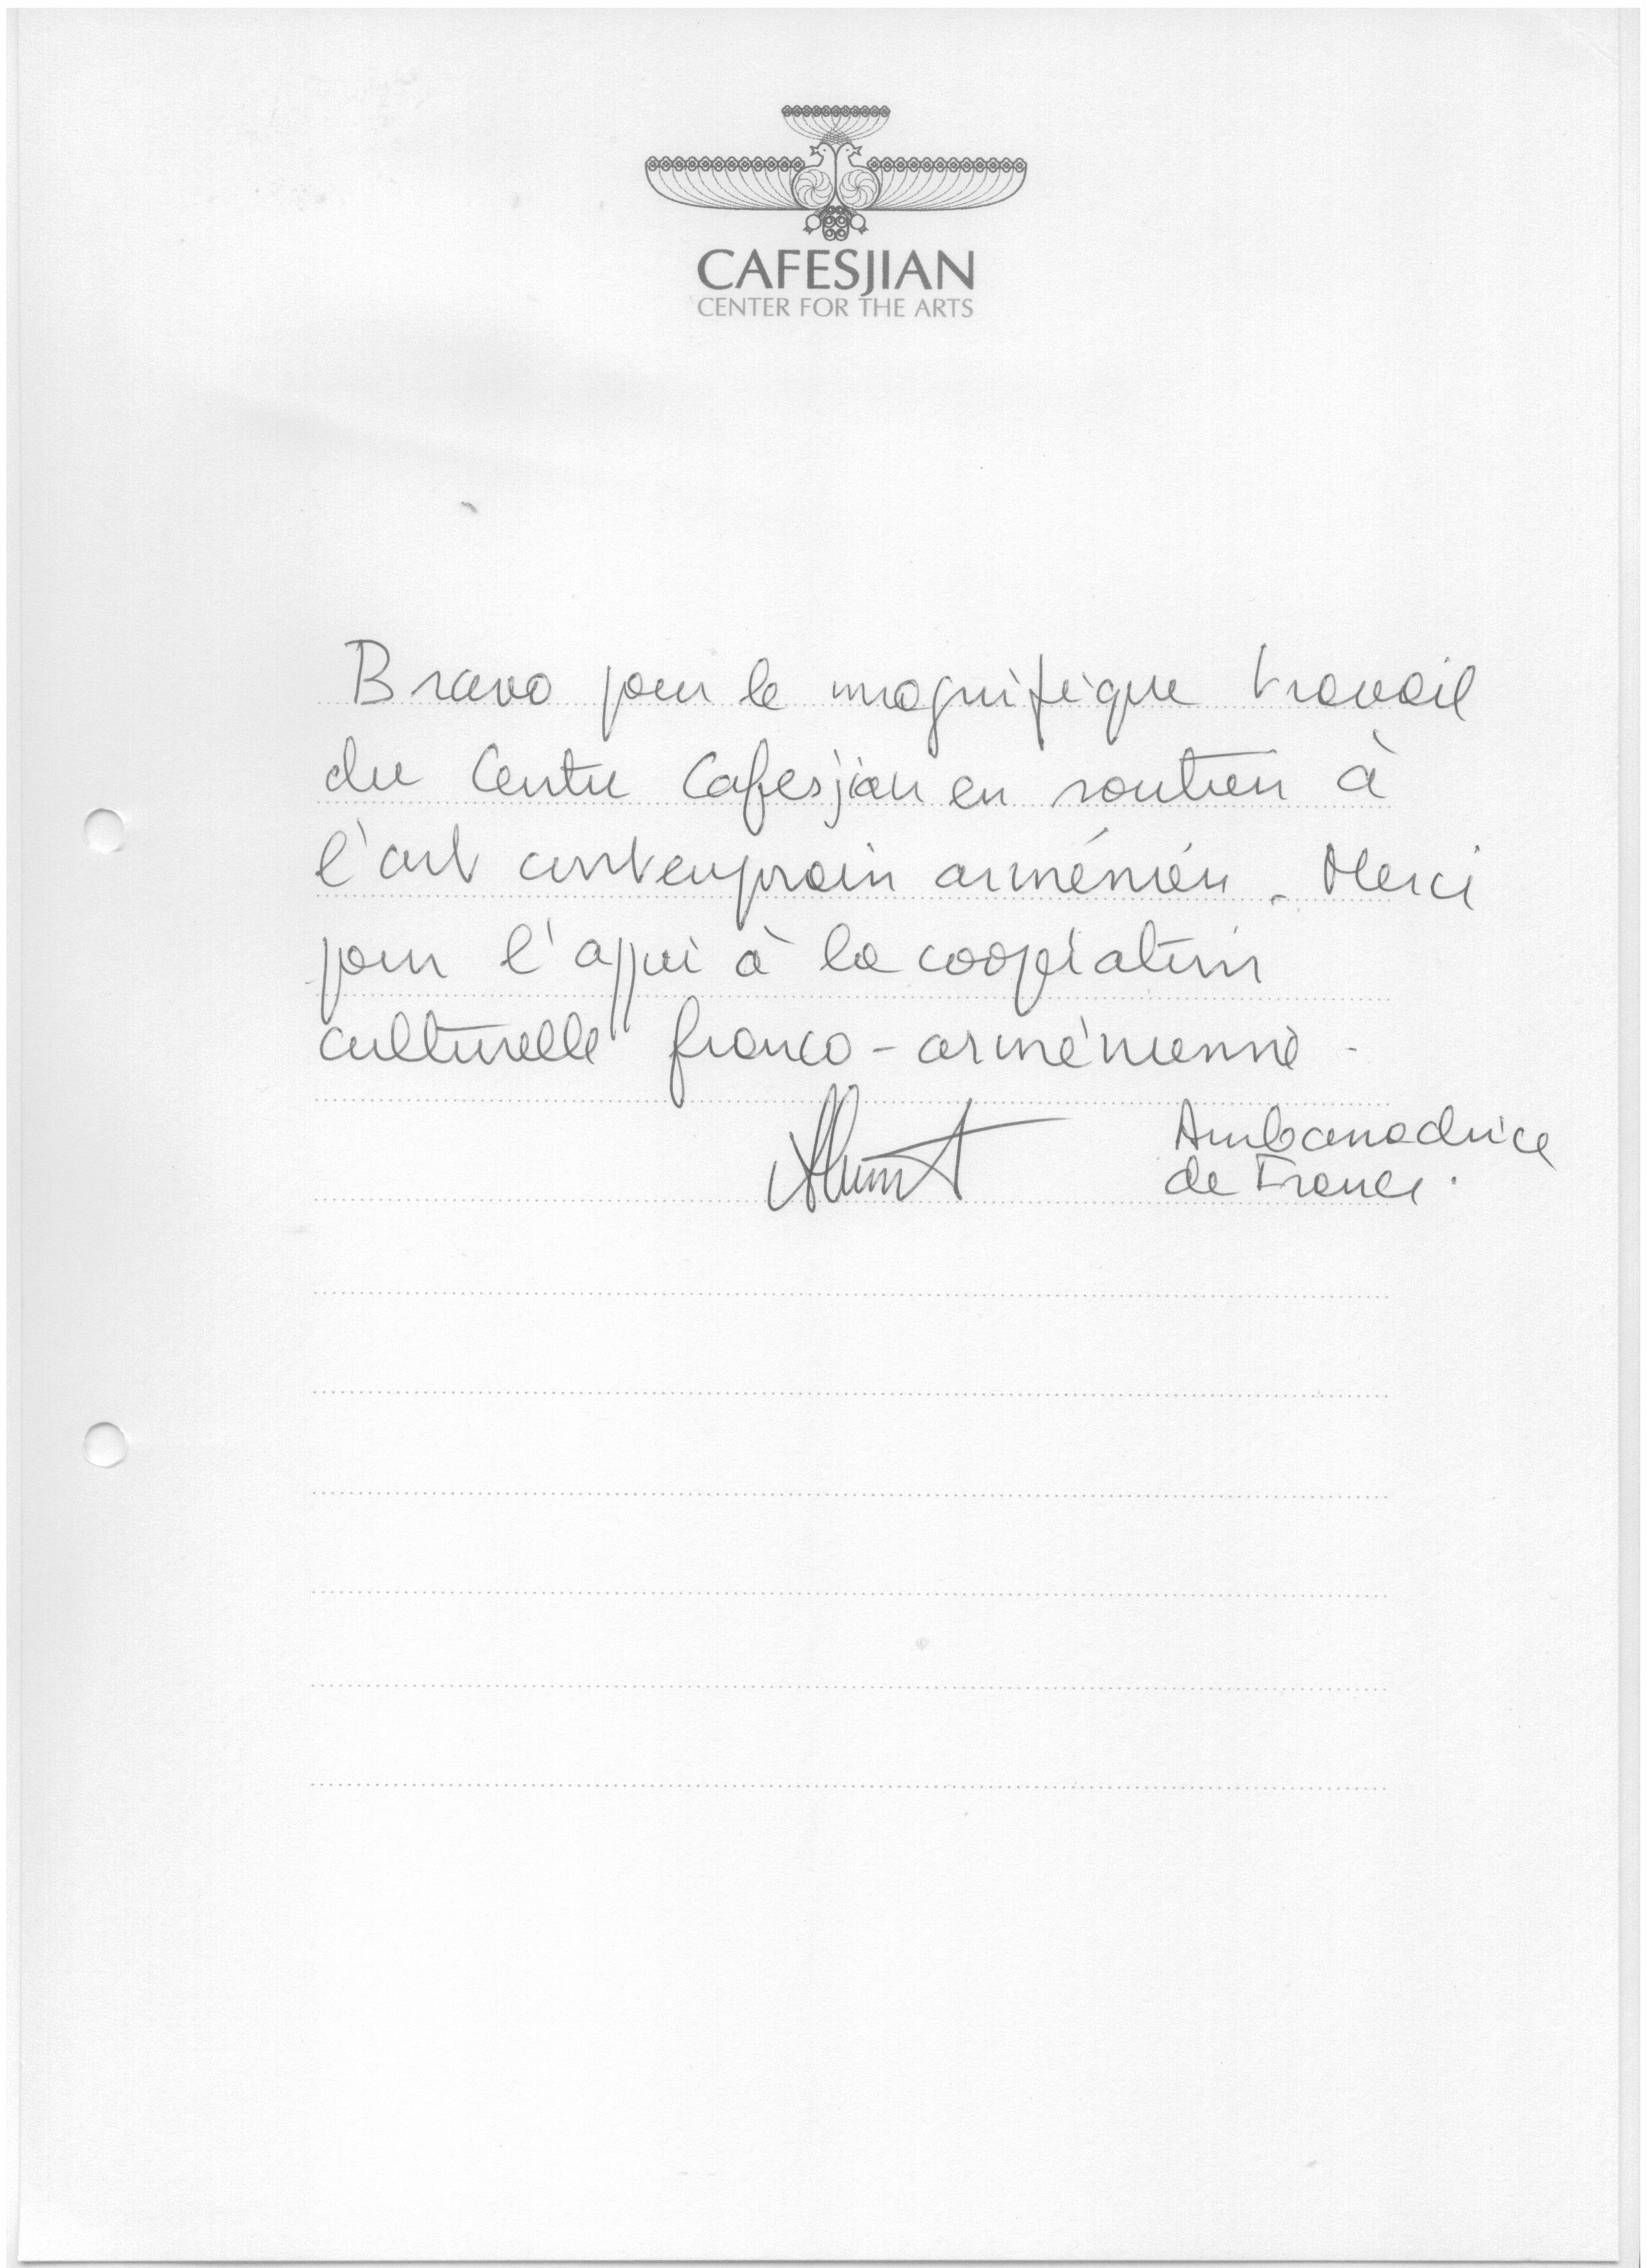 CAFESJIAN
CENTER FOR THE ARTS
Bravo pour le magnifique travail
du Centre Cafesjian en soutien à
l'art contemporain arménien. Merci
pour l'appui à la coopération
culturelle franco-arménienne.
Ambassadrice
de France.